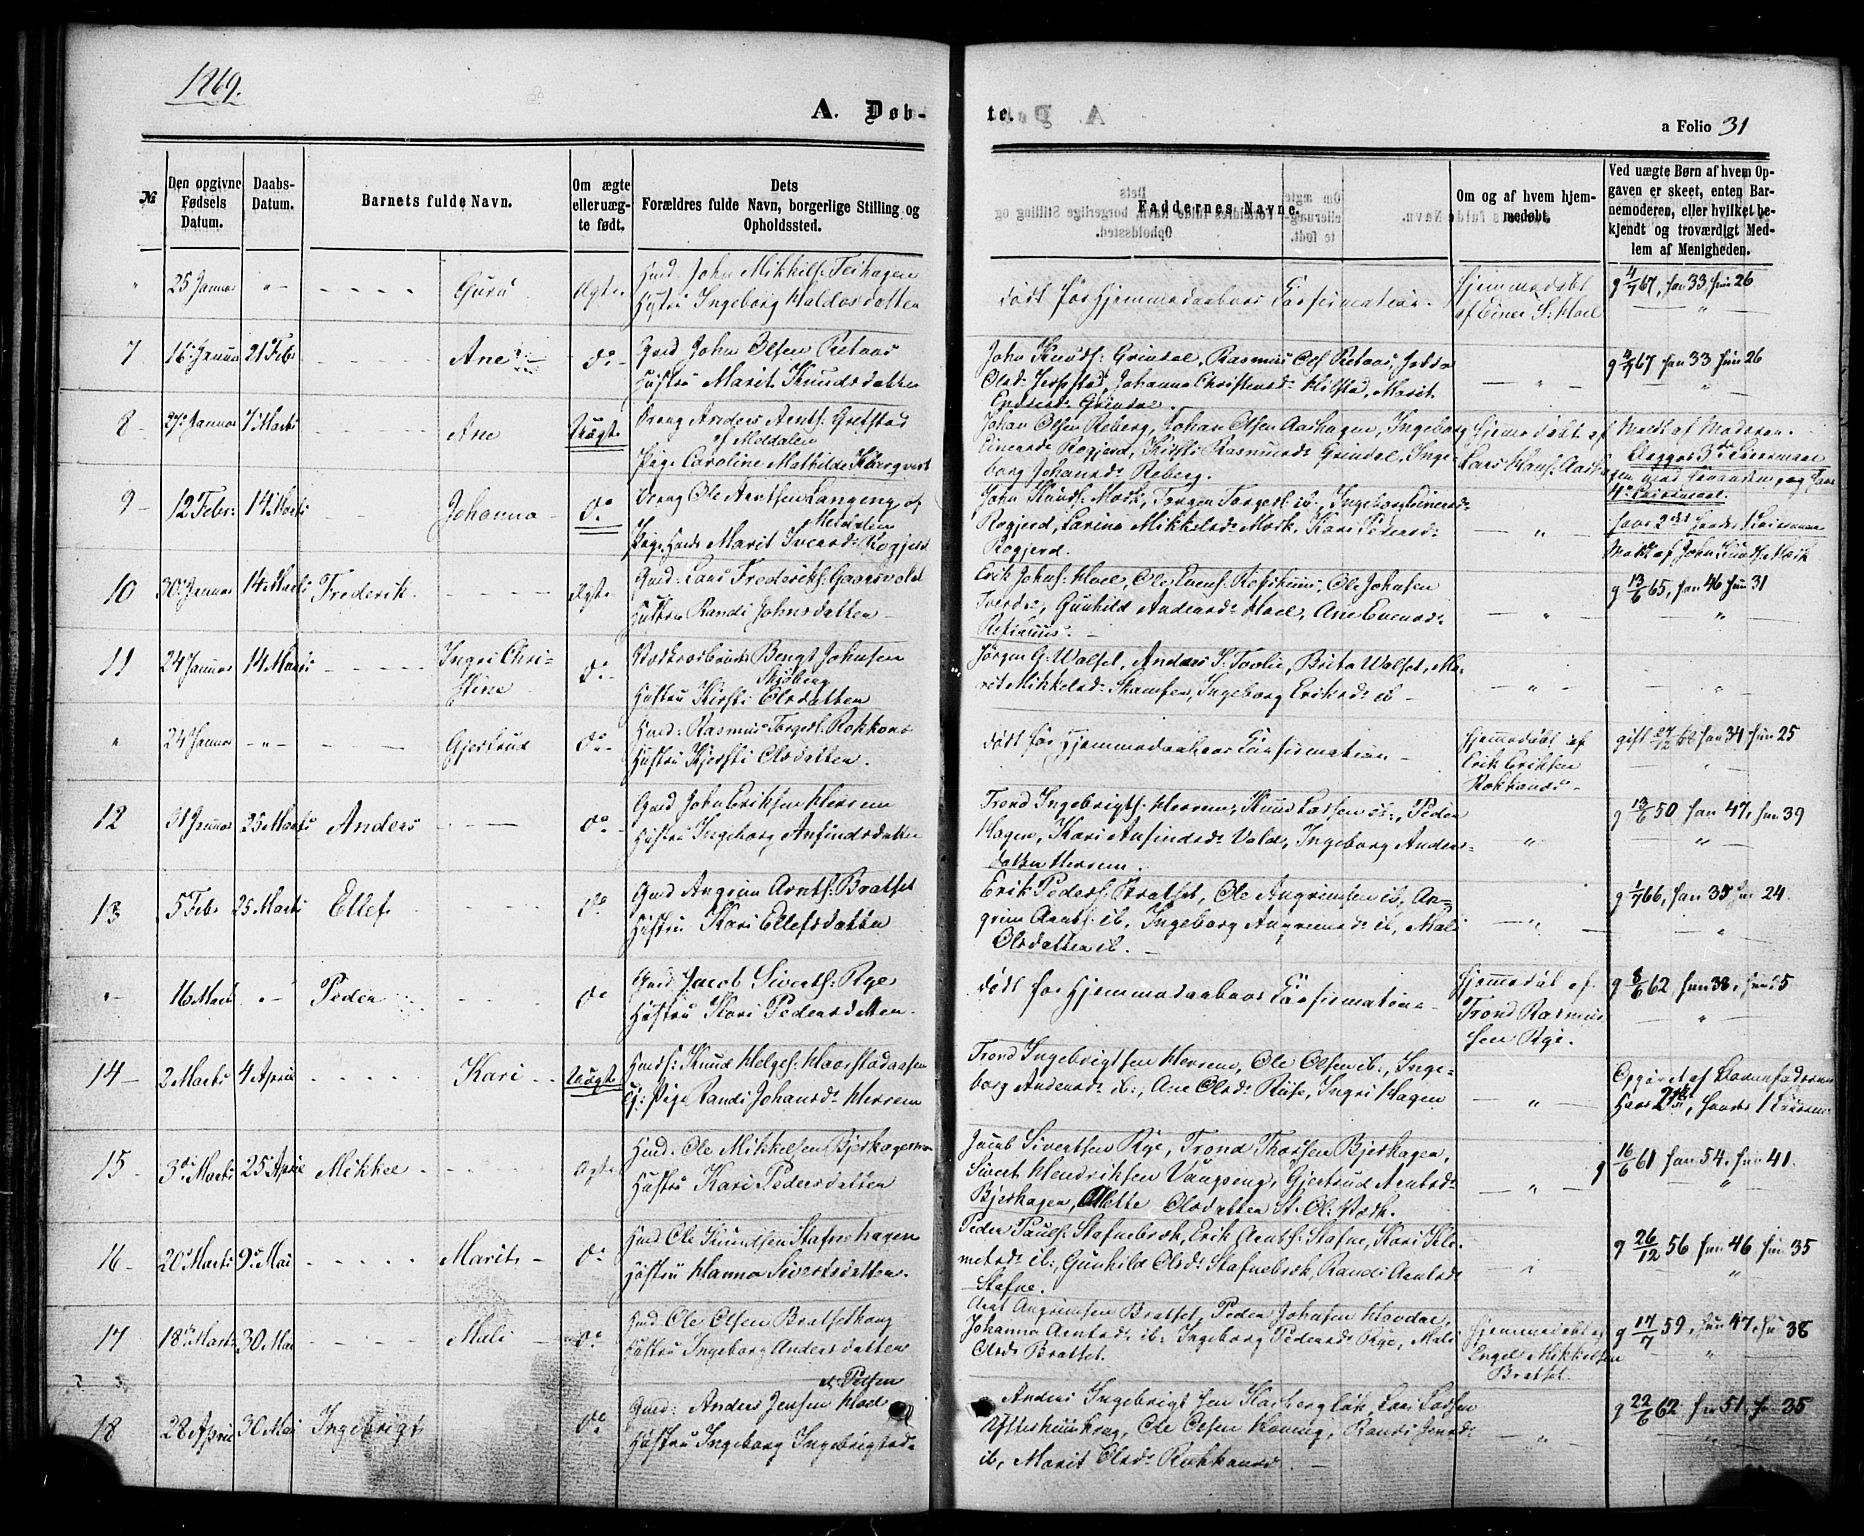 1869.
A. Døb-
te.
a Folio 31
№
Den opgivne Fødsels Datum.
Daabs-Datum.
Barnets fulde Navn.
Om ægte eller uægte født.
Dets Forældres fulde Navn, borgerlige Stilling og Opholdssted.
Faddernes Navne.
Om og af hvem hjemmedøbt.
Ved uægte Børn af hvem Opgaven er skeet, enten Barnemoderen, eller hvilket bekjendt og troværdigt Medlem af Menigheden.
" 25 Januar "
Guru
Ægte
Hmd: John Mikkels: Teihagen
Hustru Ingeborg Haldosdatter
død før Hjemmedaabens Confirmation.
Hjemmedøbt
af Einer S: Hoel
g 4/7 67, han 33, hun 26
7 16 Januar 21 Febr
Ane
do
Gmd John Olsen Retaas
Hustru Marit Knudsdatter
John Knuds: Grindal, Rasmus Ols: Retaas,
Johanna Christensd: Hilstad, Marit
Grindal.
g 4/7 67 han 33 hun 26
8 27 Januar 7 Marts
Ane
Uægte
Dreng Anders Arnts: Grefstad
af Meldalen
Pige Caroline Mathilde
Johan Olsen Reberg, Johan Olsen Aashagen, Ingeborg
Einersd: Rogjerd, Kirsti Rasmusd: Grindal, Inge-
borg Johansd: Reberg.
Hjemmedøbt af
Lars Hans: Aas
Meldt af Moderen.
9 12 Febr: 14 Marts
Johanna
do
Dreng Ole Arntsen Langeng af
Meldalen
Pige Marit Iversd: Rogjerd
John Knuds: Mork, Torger Torgers: ib, Ingeborg Einersd:
Rogjerd, Karina Mikkelsd: Mork, Kari Pedersd:
Rogjerd.
Meldt af John Knuds: Mork
10 30 Januar 14 Marts Frederik
Ægte
Gmd: Lars Frederiks: Gaasvold
Hustru Randi Johnsdatter
Erik Johns: Hoel, Ole Evens: Refshuus, Ole Johnsen
Gunhild Andersd: Hoel, Ane Evensd:
Refshuus.
g 13/6 65, han 46 hun 31
11 24 Januar 14 Marts
Ingri Chri-
stine
do
Bengt Johnsen
Sjøberg
Hustru Kirsti Olsdatter
Jørgen G: Walset, Anders I: Toolie, Brita Walset, Ma-
rit Mikkelsd: Skamfer, Ingeborg Eriksd: ib
" 24 Januar "
Gjertrud
do
Hmd: Rasmus Torgers: Rokkones
Hustru Kjersti Olsdatter.
død før Hjemmedaabens Confirmation
Hjemmedøbt af
Erik Eriksen
Rokkones
gift 27/12 han 34 hun 25
12 31 Januar 25 Marts Anders
do
Gmd John Eriksen Herrem
Hustru Ingeborg Anfindsdatter
Trond Ingebrigts: Herrem, Knud Larsen ib:, Peder
Hagen, Kari Anfindsd: Vold, Ingeborg Anders-
datter Herrem.
g 13/6 50 han 47, hun 39
13 5 Febr 25 Marts Ellef
do
Gmd Angrim Arnts: Bratset
Hustru Kari Ellefsdatter
Erik Peders: Bratset, Ole Angrimsen ib, An-
grim Arnts: ib, Ingeborg Angrimsd: ib, Mali
Olsdatter ib.
g 1/7 66, han 35 hun 24.
" 16 Marts " Peder
do
Gmd Jacob Siverts: Rye
Hustru Kari Pedersdatter.
død før Hjemmedaabens Confirmation
Hjemmedøbt af
Trond Rasmus-
sen Rye.
g 8/6 62, han 38,
14 2 Marts 4 April
Kari
Uægte
Knud Helges: Haarstadaasen
Pige Randi Johansd: Herrem
Trond Ingebrigtsen Herrem, Ole Olsen ib:, Inge-
borg Andersd: ib:, Ane Olsd: Riise, Ingri Hagen
Opgivet af Barnefaderen
Hans 2det, hendes 1 Leiermaal
15 3 Marts 25 April Mikkel
Ægte
Hmd: Ole Mikkelsen Bjerkager
Hustru Kari Pedersdatter
Jacob Sivertsen Rye, Trond Thoresen Bjerhagen,
Sivert Hendriksen Vangseng, Gjertrud Arntsd:
Bjerhagen, Mette Olsdatter
g 16/6 61 han 54, hun 41.
16 20 Marts 9 Mai
Marit
do
Hmd Ole Knudsen Stafnehagen
Hustru Hanna Sivertsdatter.
Peder Pauls: Stafnebrek, Erik Arnts: Stafne, Kari Kle-
metsd: ib:, Gunhild Olsd: Stafnebrek, Randi Arntsd:
Stafne.
g 26/12 56 han 46 hun 35
17 18 Marts 30 Mai
Mali
do
Hmd Ole Olsen Bratsethaug
Hustru Ingeborg Andersdatter
Arnt Angrimsen Bratset, Peder Johnsen Havdal,
Johanna Arntsd: ib: Ingeborg Pedersd: Rye, Mali
Olsd: Bratset.
Hjemmedøbt af
Engel Mikkelsen
Bratset.
g 17/7 59, han 47, hun 38
18 28 April 30 Mai Ingebrigt
do
Gmd: Anders Jensen Hoel
Hustru Ingeborg Ingebrigtsd:
Anders Ingebrigtsen
Ole Olsen Haneng, Randi Jensd:
ib, Marit Olsd: Rokkones.
g 22/6 62 han 51, hun 35